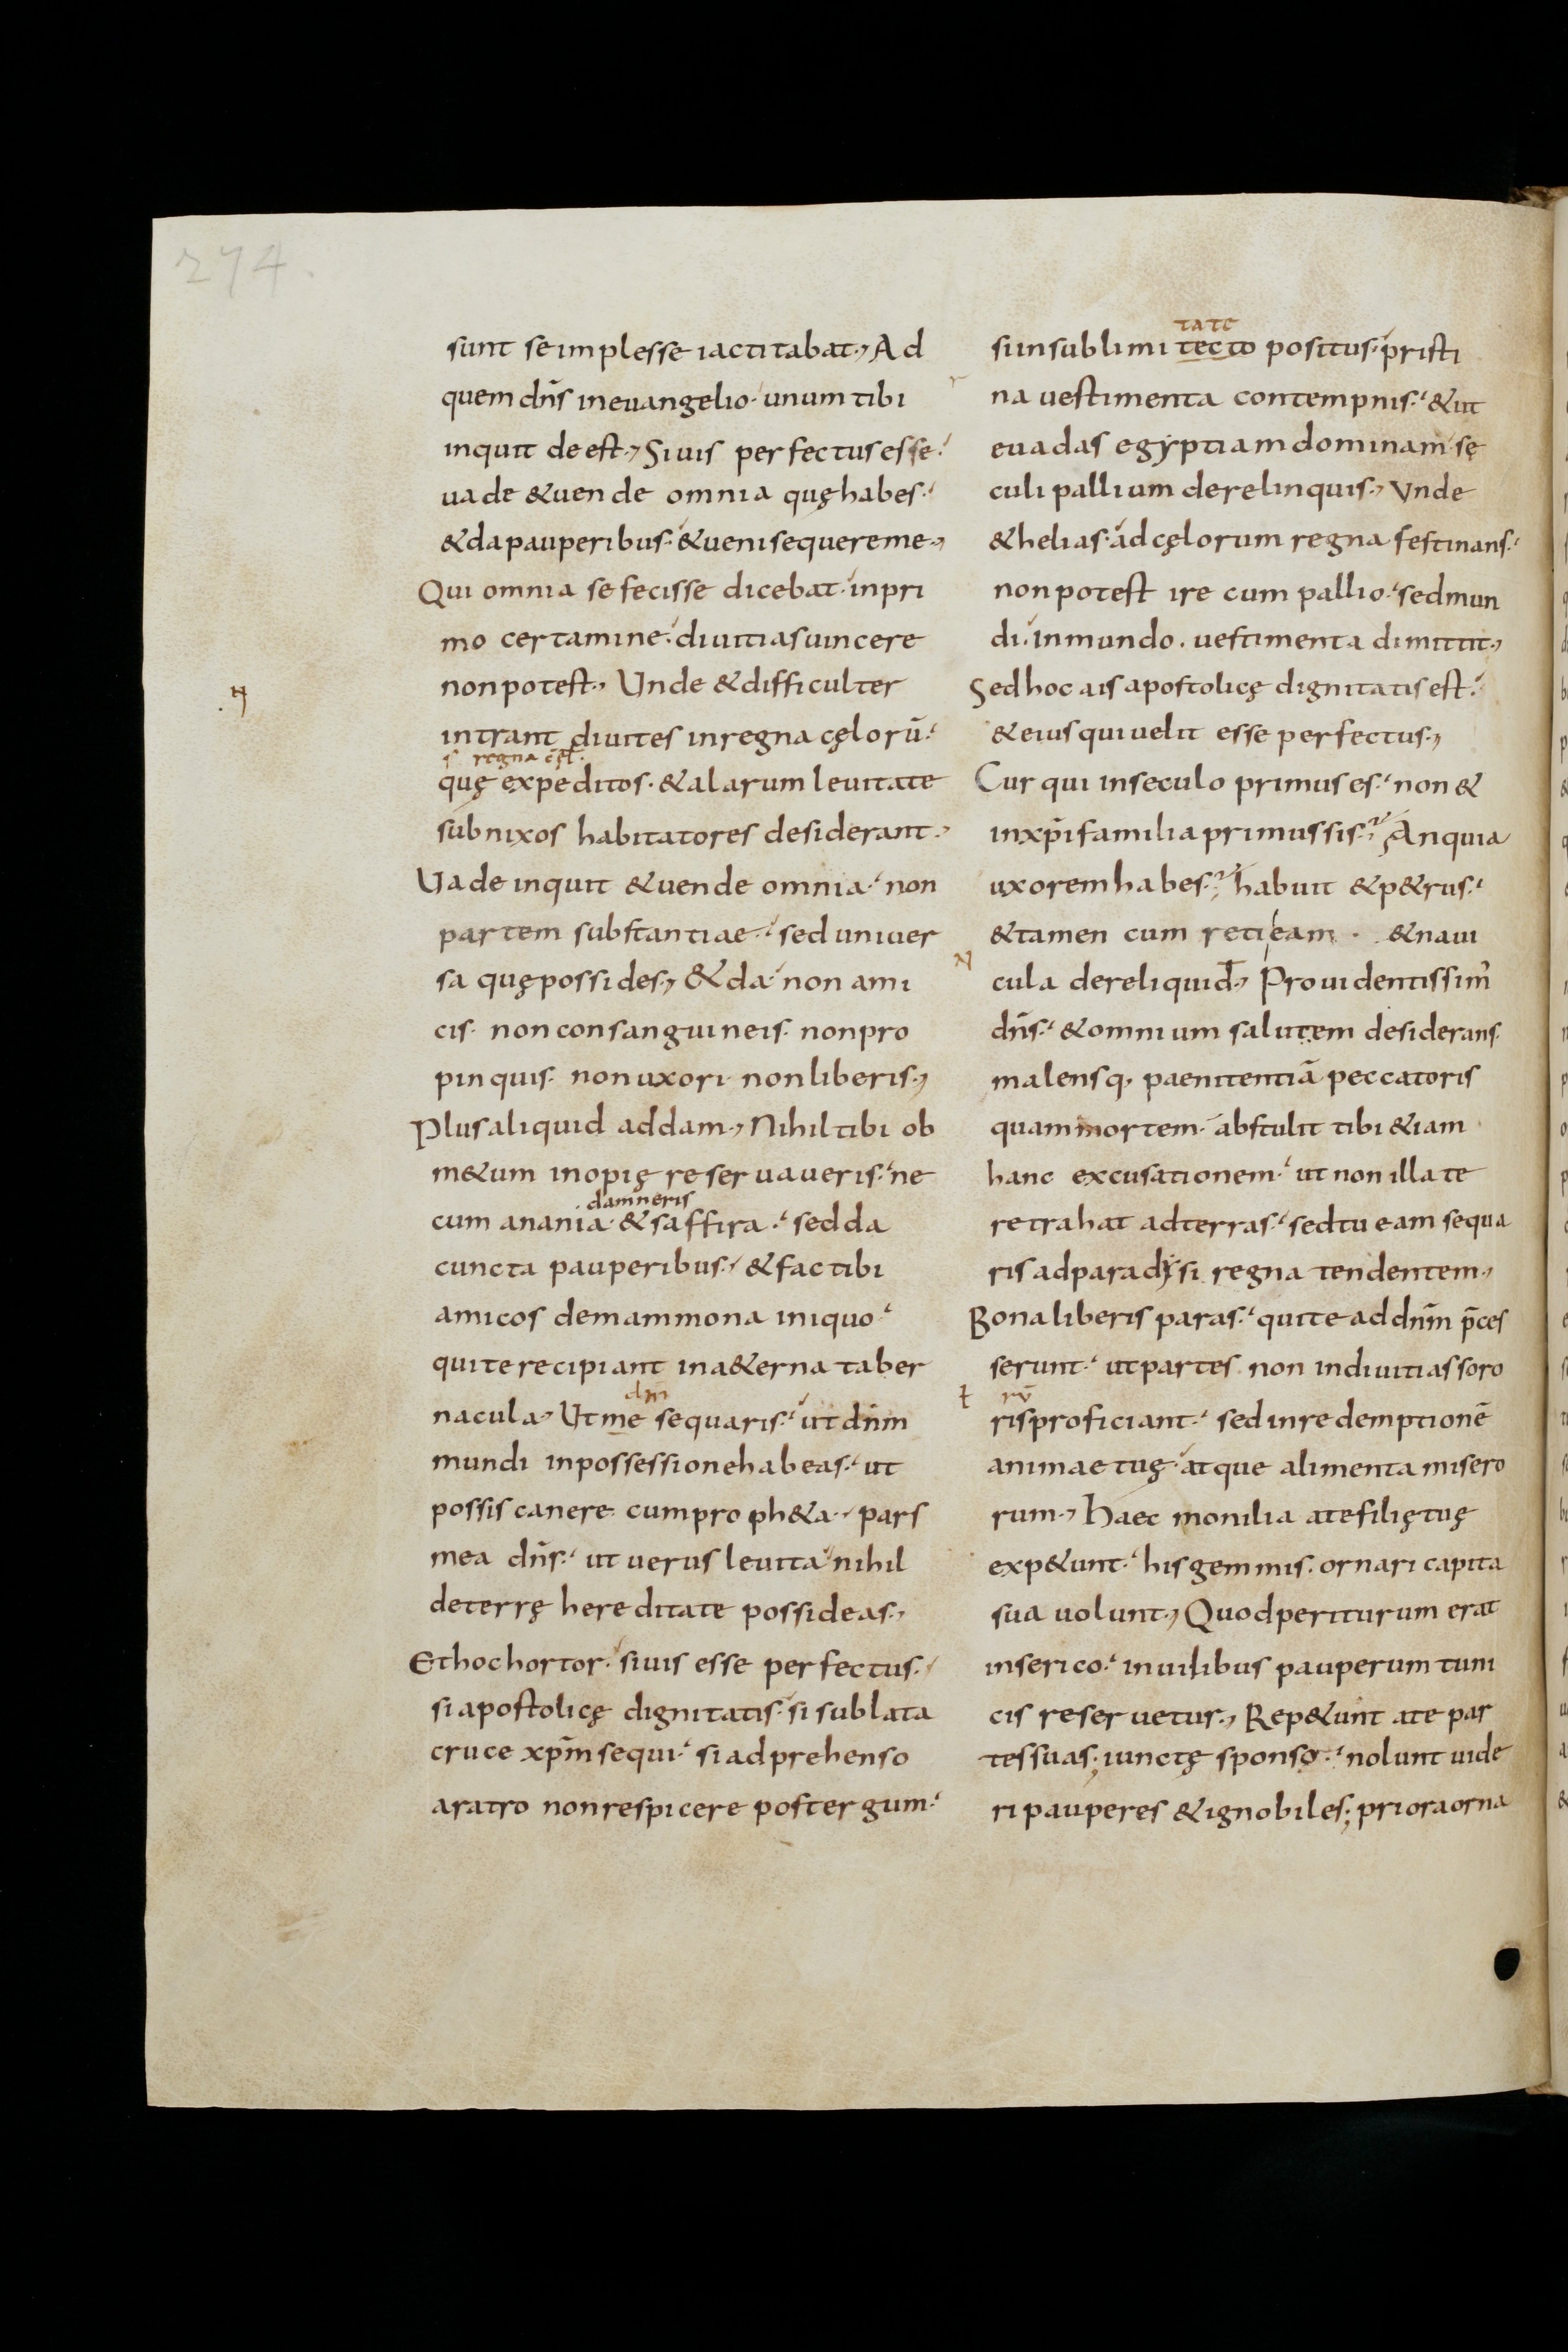 274.
sunt se implesse iactitabat., Ad
quem dn̄s in euangelio. unum tibi
inquit deest., Si uis perfectus esse.
uade & uende omnia quę habes.
& da pauperibus. & ueni sequere me.,
Qui omnia se fecisse dicebat. in pri
mo certamine. diuitias uincere
non potest., Unde & difficulter
intrant diuites in regna cęlorū.
s regna cęl.
quę expeditos. & alarum leuitate
subnixos habitatores desiderant.,
Uade inquit & uende omnia. non
partem substantiae. sed uniuer
sa quę possides., & da. non ami
cis. non consanguineis. non pro
pinquis. non uxori. non liberis.,
Plus aliquid addam., Nihil tibi ob
m&um inopię reseruaueris. ne
damneris
cum anania. & saffira. sed da
cuncta pauperibus. & fac tibi
amicos de mammona iniquo.
qui te recipiant in a&erna taber
dm̄
nacula., Ut me sequaris. ut dn̄m
mundi in possessione habeas. ut
possis canere cum proph&a. pars
mea dn̄s. ut uerus leuita. nihil
de terrę hereditate possideas.,
Et hoc hortor. si uis esse perfectus.
si apostolicę dignitatis. si sublata
cruce xp̄m sequi. si adprehenso
aratro non respicere post tergum.
tate
si in sublimi tecto positus. pristi
na uestimenta contempnis. & ut
euadas egyptiam dominam. sę
culi pallium derelinquis., Unde
& helias. ad cęlorum regna festinans.
non potest ire cum pallio. sed mun
di. in mundo. uestimenta dimittit.,
Sed hoc ais apostolicę dignitatis est.
& eius qui uelit esse perfectus.,
Cur qui in seculo primus es. non &
in xp̄i familia primus sis.? An quia
uxorem habes.? habuit & p&rus.
& tamen cum reti eam. & naui
cula dereliquid., Prouidentissim᷒
dn̄s. & omnium salutem desiderans.
malensq. paenitentiā peccatoris
quam mortem. abstulit tibi &iam
hanc excusationem. ut non illa te
retrahat ad terras. sed tu eam sequa
ris ad paradysi regna tendentem.,
Bona liberis paras. qui te ad dn̄m p̄ces
serunt. ut partes non in diuitias soro
ł rū
ris proficiant. sed in redemptionē
animae tuę. atque alimenta misero
rum., Haec monilia a te filię tuę
exp&unt. his gemmis. ornari capita
sua uolunt., Quod periturum erat
in serico. in uilibus pauperum tuni
cis reseruetur., Rep&unt a te par
tes suas; iunctę sponso. nolunt uide
ri pauperes & ignobiles; priora orna